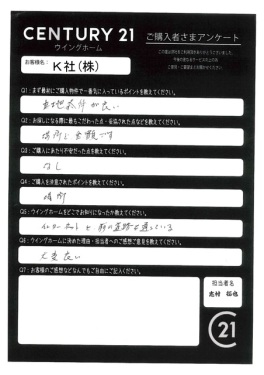 CENTURY 21
ウイングホーム
ご購入者さまアンケート
お客様名：
K社(株)
Q1：まず最初にご購入物件で一番気に入っているポイントを教えてください。
立地条件が良い
Q2：お探しになる際に最もこだわった点・妥協された点などを教えてください。
場所と金額です
Q3：ご購入にあたり不安だった点を教えてください。
なし
Q4：ご購入を決意されたポイントを教えてください。
場所
Q5：ウイングホームをどこでお知りになったか教えてください。
インターネットと 前の道路を通っている
Q6：ウイングホームに決めた理由・担当者へのご感想ご意見を教えてください。
大変良い
Q7：お客様のご感想などなんでもご自由にご記入ください。
担当者名
C21